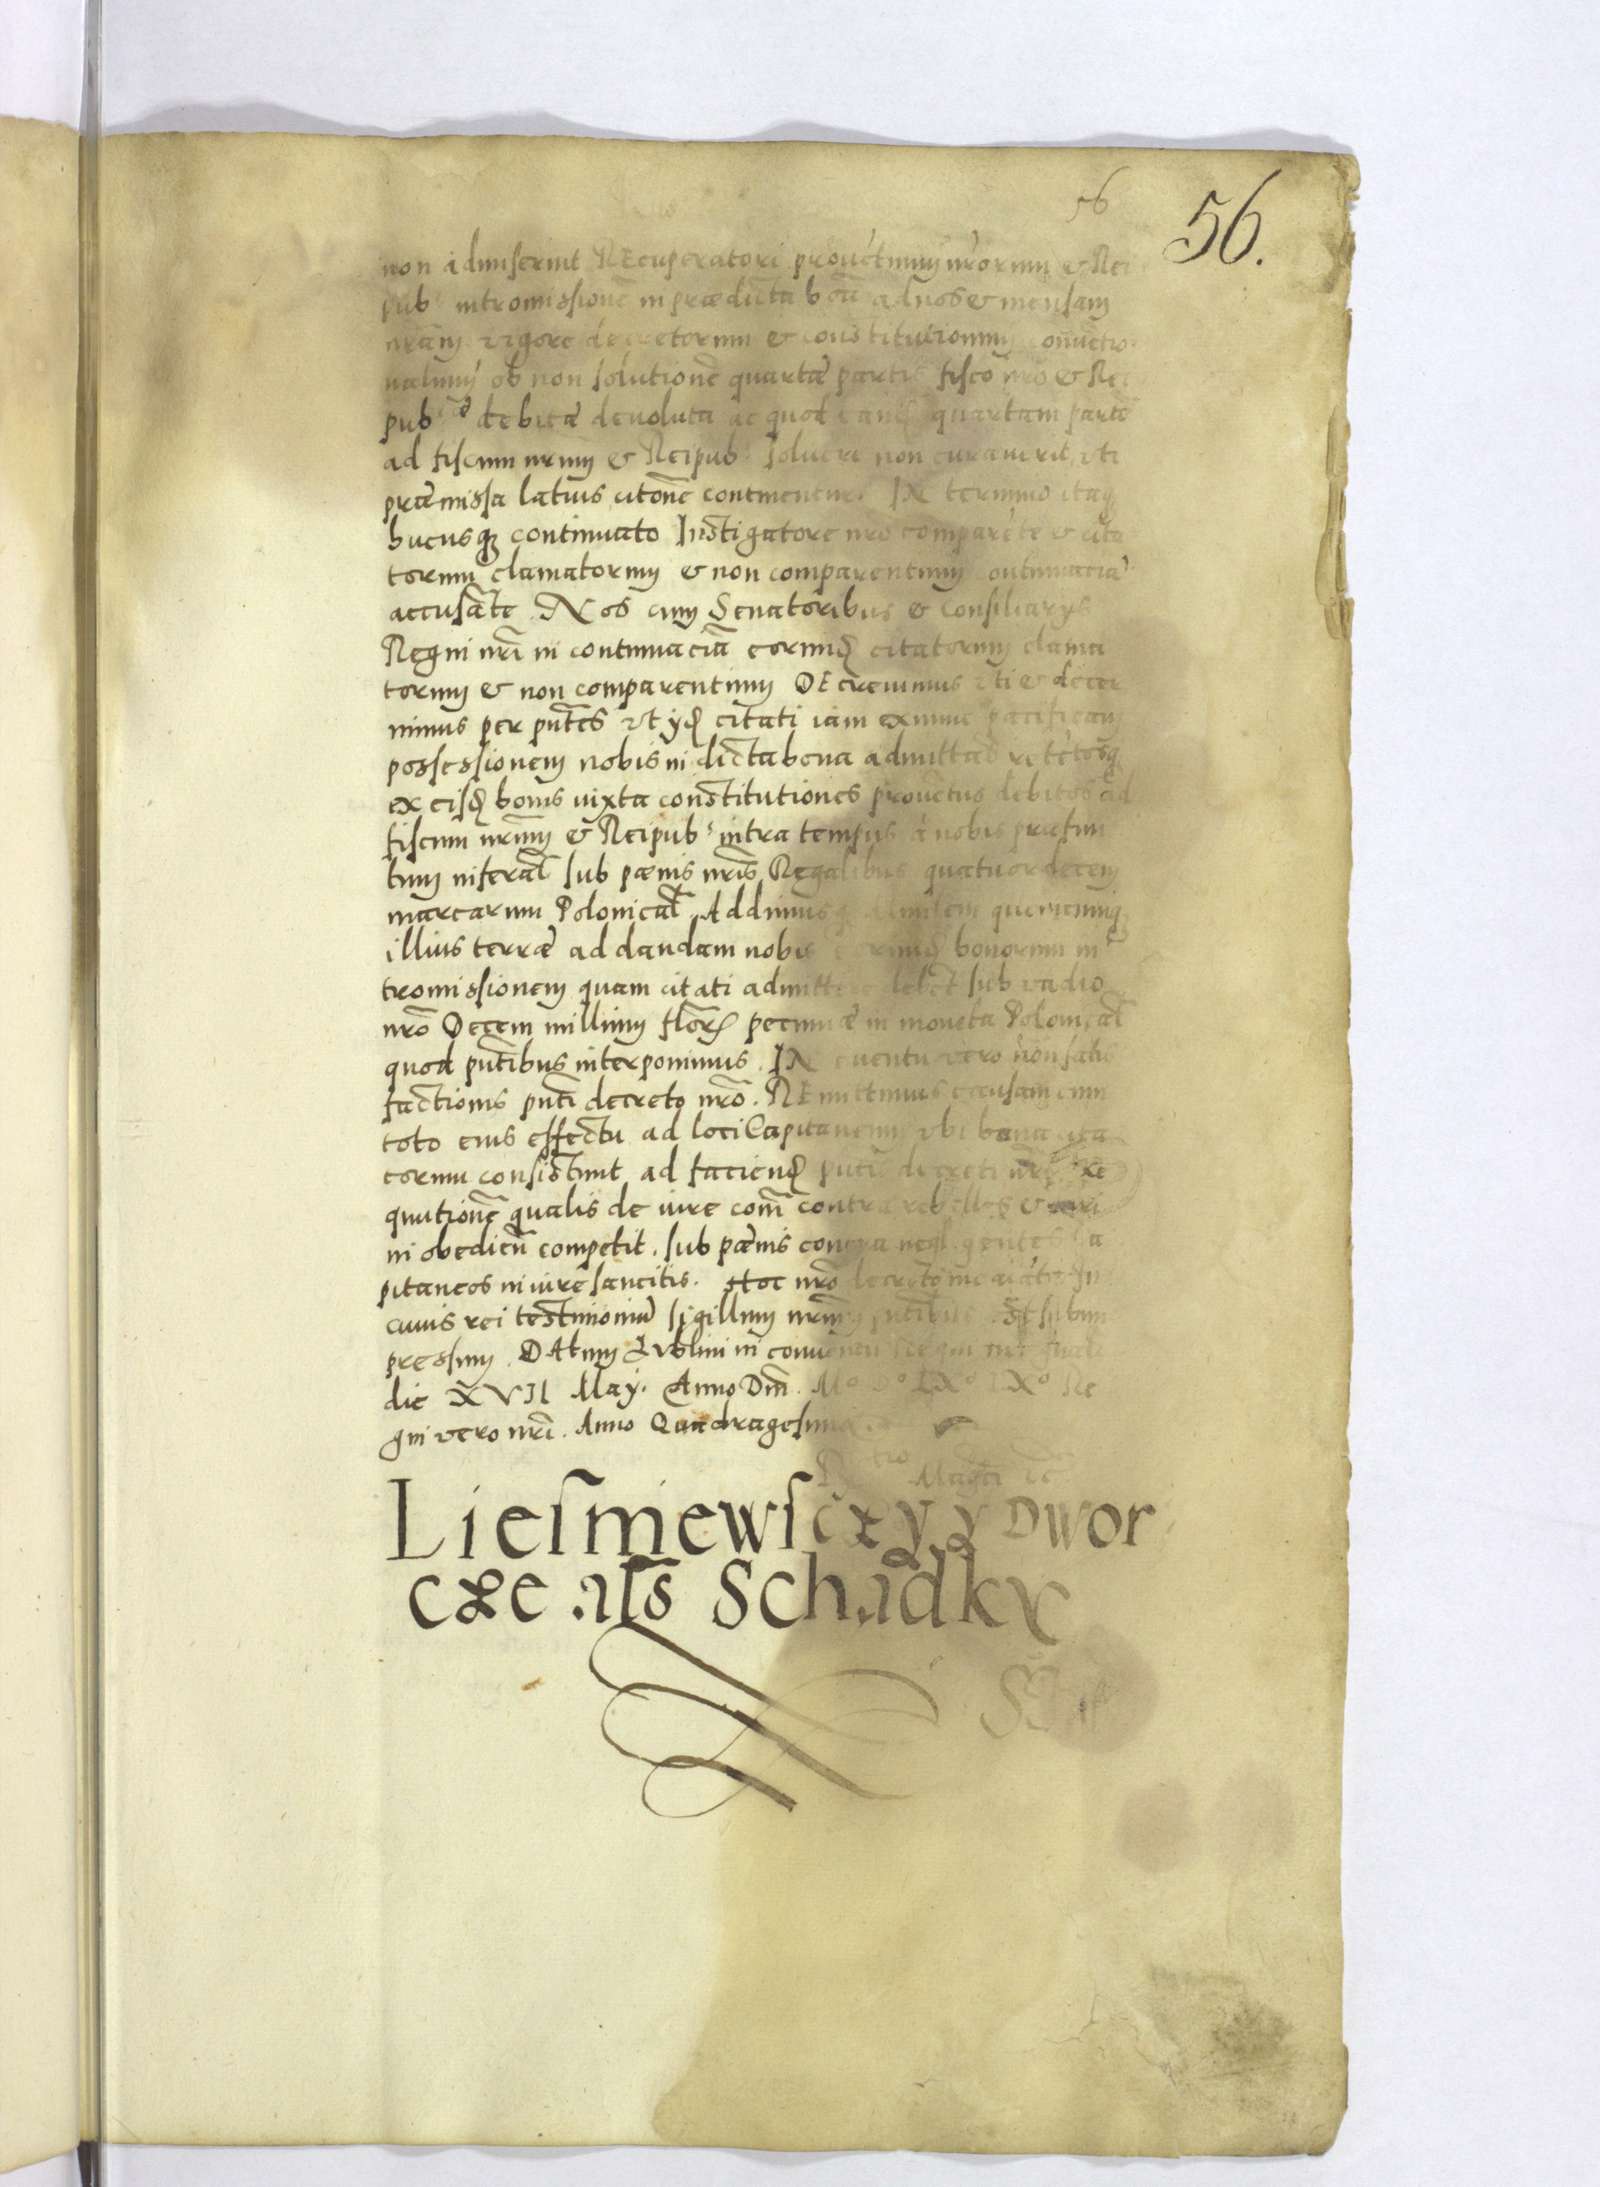 56
56.
non admiserint REcuperatori provẽtuum nrõrum & Rei
pubᶜ intromissionẽ in prædicta bona ad nos & mensam
nrãm vigore decretorum & constitutionum convẽtio
nalium ob non solutionẽ quartæ partis fisco nrõ & Rei
pubᶜᵃᵉ debitæ devoluta ac quod iam quartam partẽ
ad fiscum nrum & Reipubᶜ solvere non curaverit, uti
præmissa latius citõne continentur. IN termino itaq
hucusq continuato Instigatore nrõ comparẽte & cita
torum clamatorum & non comparentium contumaciã
accusãte. Nos cum Senatoribus & Consiliarijs
Regni nrĩ in contumaciã eorund citatorum clama
torum & non comparentium DEcrevimus uti & decer
nimus per pñtes ut ijd citati iam exnunc pacificam
possessionem nobis in dicta bona admittãt
ex eisd bonis iuxta constitutiones provẽtus debitos ad
fiscum nrũm & Reipubᶜ intra tempus à nobis præfini
tum inferãt sub pœnis nrĩs Regalibus quatuordecem
marcarum Polonicał. Addimusq quemcunq
illius terræ ad dandam nobis eorund bonorum in
tromissionem quam citati admittere debẽt sub vadio
nrõ Decem millium florẽ pecuniæ in monẽta Polonicał
quod pñtibus interponimus. IN eventu vero non satis
factionis pñti decreto nrõ. REmittimus causam cum
toto eius effectu ad loci Capitaneum ubi bona cita
torum consistunt ad faciend pñtis decreti nrĩ exe
quutionẽ qualis de iure com̃ contra rebelles & iuri
in obedien̄ competit. sub pœnis contra negligentes Ca
pitaneos in iure sancitis. Hoc nrõ decreto mediãte. In
cuius rei testimoniũ sigillum nrũm pñtibus est subim
pressum. DAtum Lublini in conventu Regni
die XVII Maij. Anno Dni. Mº Dº LXº IXº Re
gni vero nrĩ. Anno Quadragesimo.
Liesmiewscży y Dwor
cże als̃ Schadky